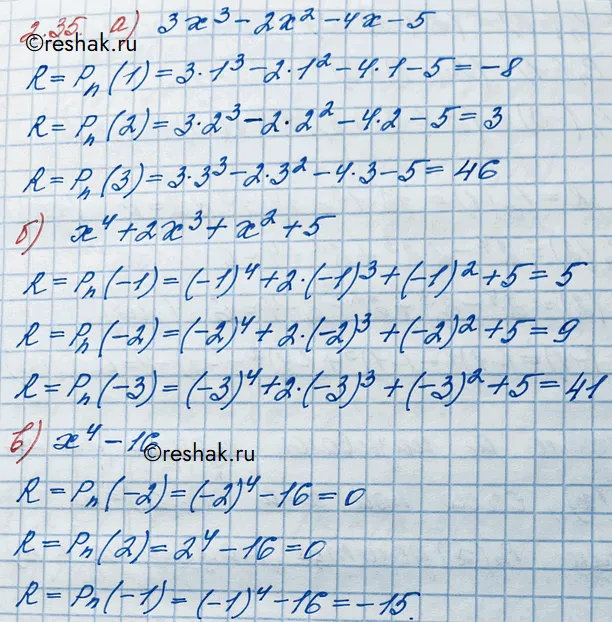 2.35 а) 3x³ - 2x² - 4x - 5
©reshak.ru
R = Pₙ(1) = 3·1³ - 2·1² - 4·1 - 5 = -8
R = Pₙ(2) = 3·2³ - 2·2² - 4·2 - 5 = 3
R = Pₙ(3) = 3·3³ - 2·3² - 4·3 - 5 = 46
б) x⁴ + 2x³ + x² + 5
R = Pₙ(-1) = (-1)⁴ + 2·(-1)³ + (-1)² + 5 = 5
R = Pₙ(-2) = (-2)⁴ + 2·(-2)³ + (-2)² + 5 = 9
R = Pₙ(-3) = (-3)⁴ + 2·(-3)³ + (-3)² + 5 = 41
в) x⁴ - 16
©reshak.ru
R = Pₙ(-2) = (-2)⁴ - 16 = 0
R = Pₙ(2) = 2⁴ - 16 = 0
R = Pₙ(-1) = (-1)⁴ - 16 = -15.